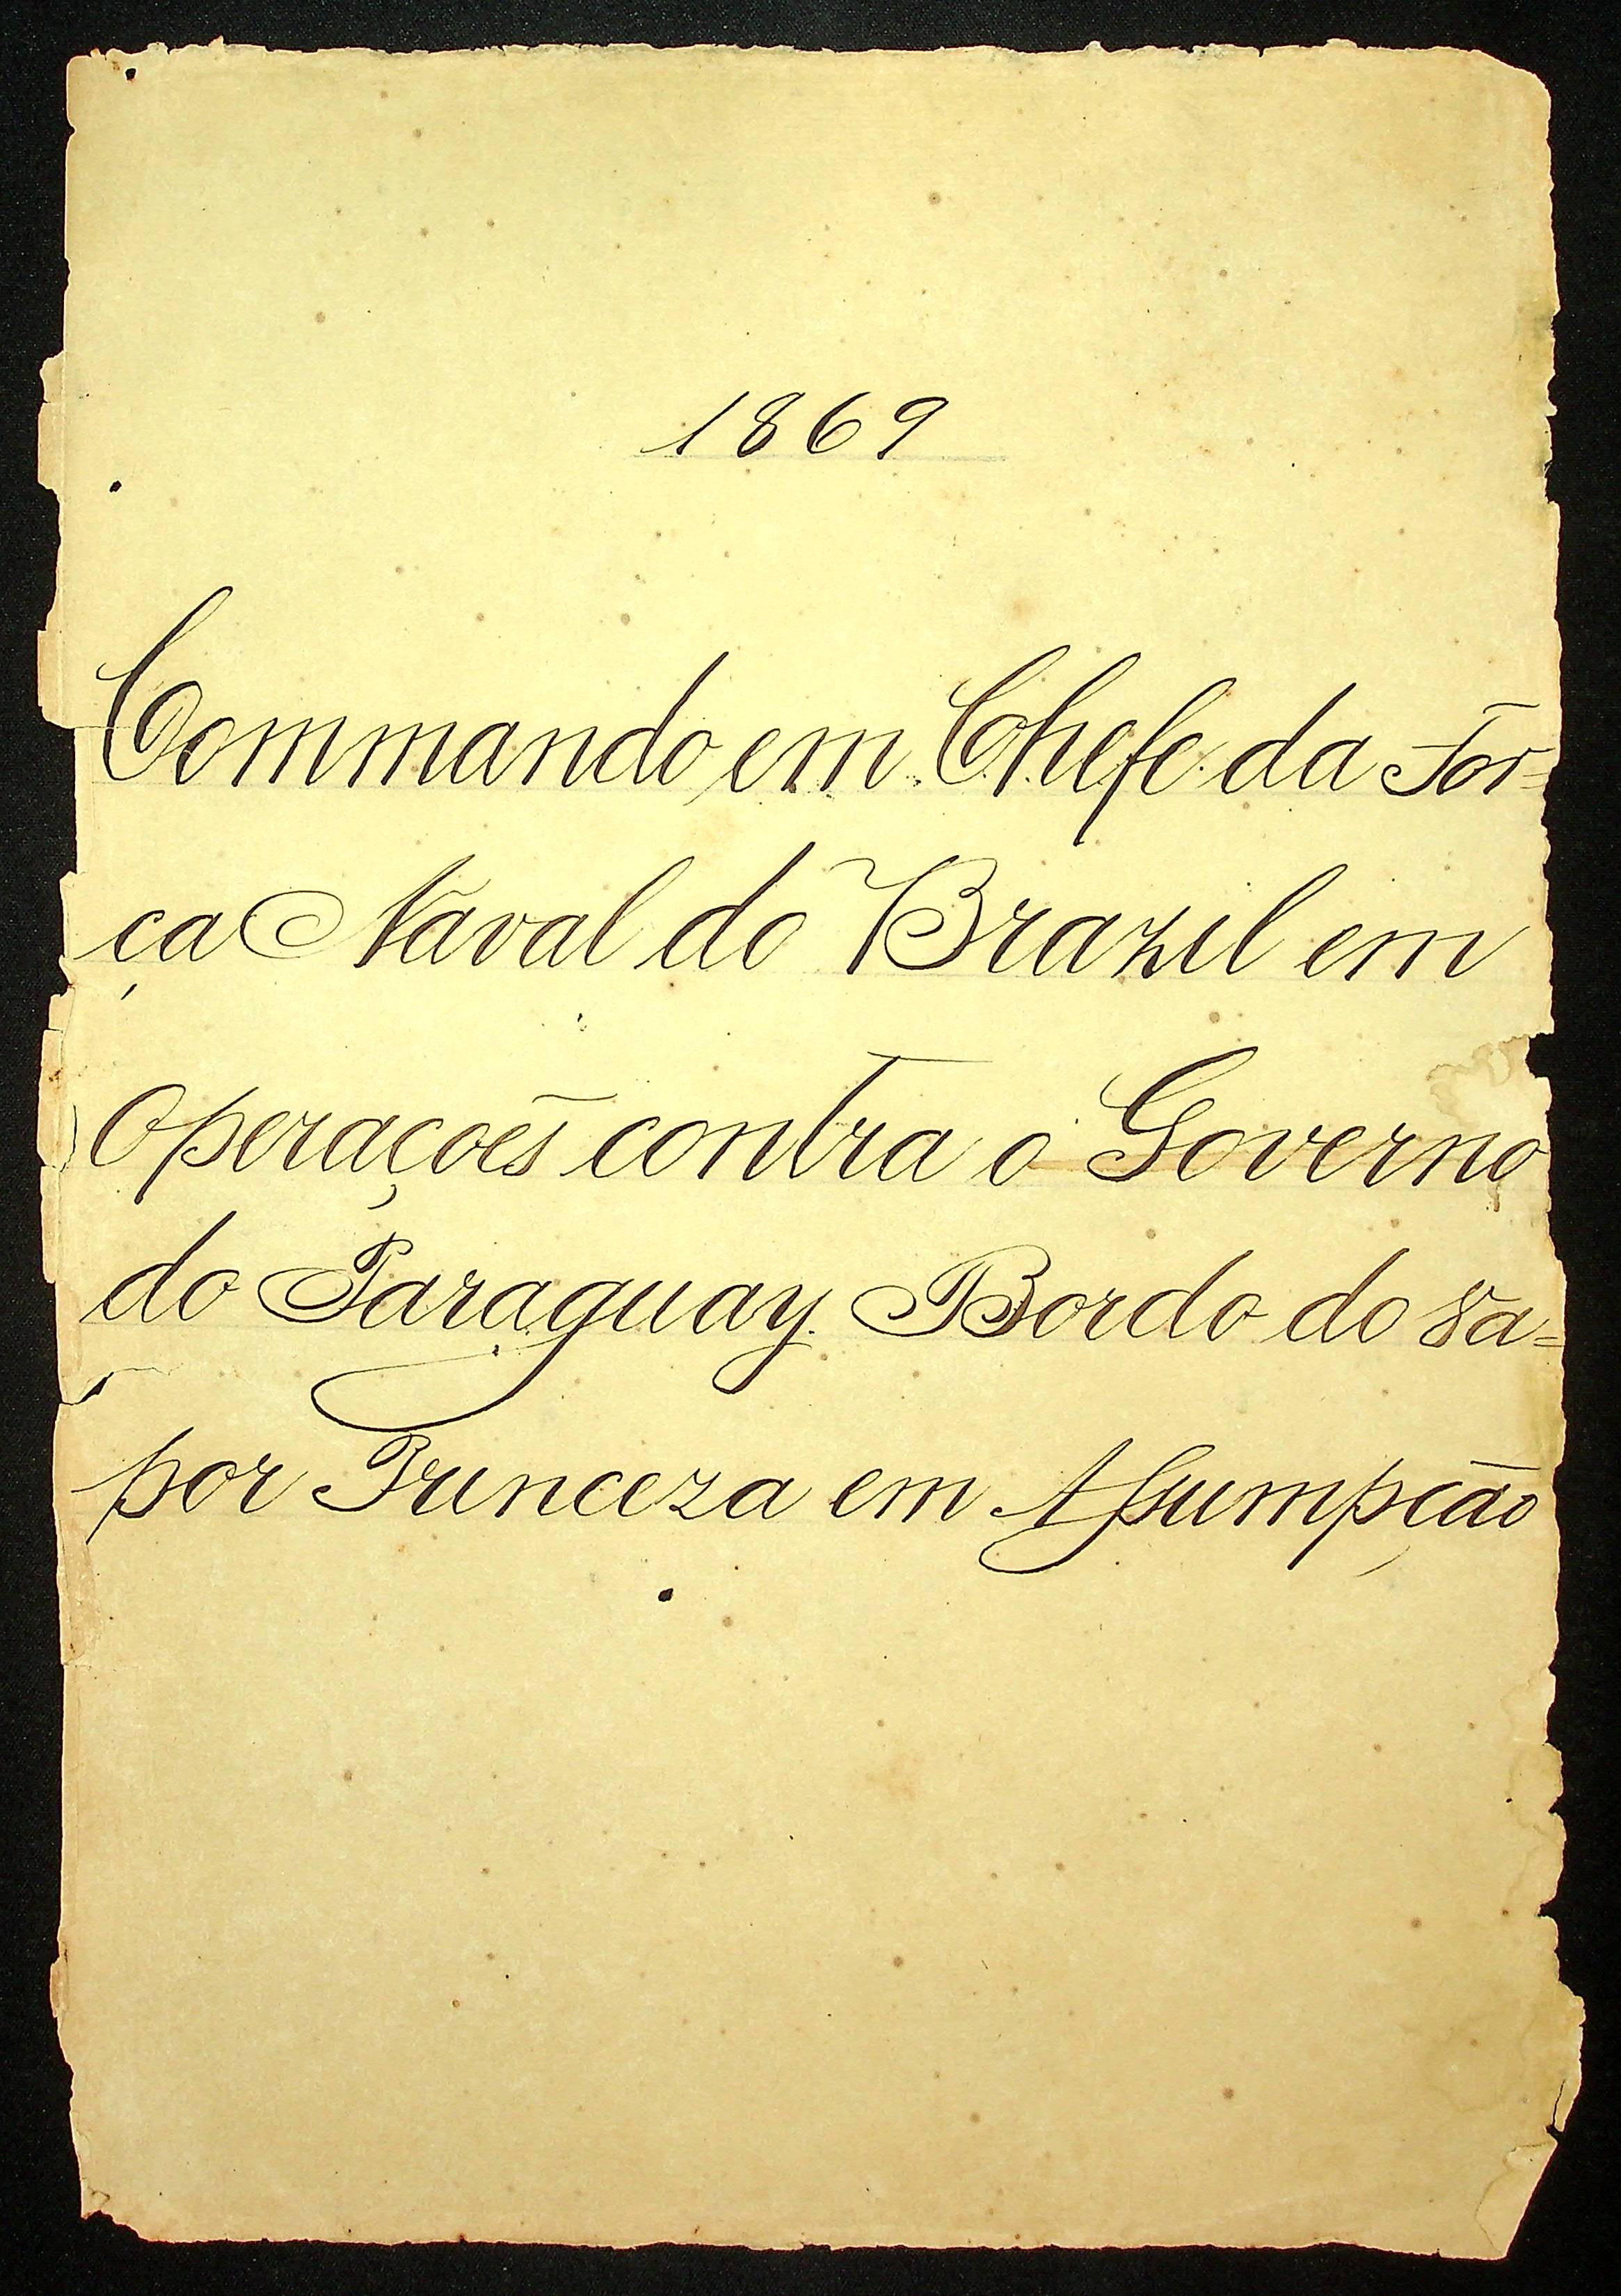 1869
Commando em Chefe da For=
ça Naval do Brazil em
Operações contra o Governo
do Paraguay Bordo do Va=
por Princeza em Assumpção